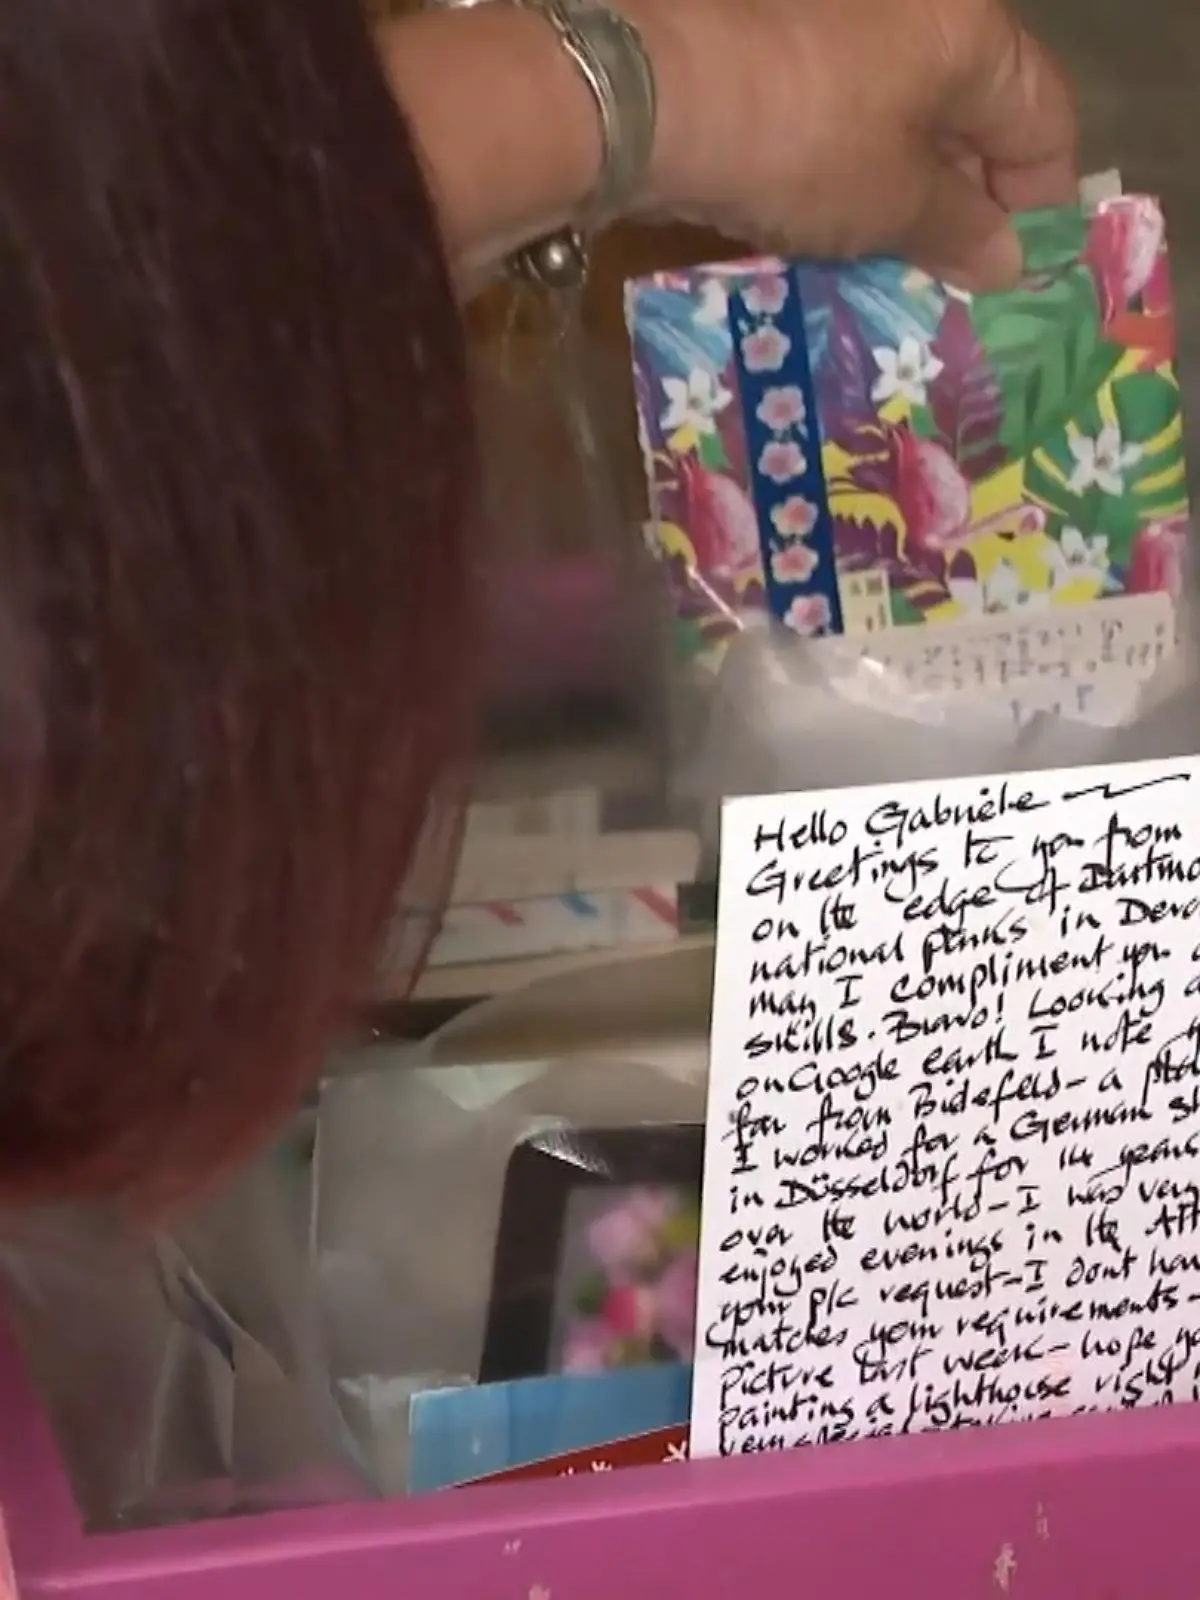 Hello Gabriele
Greetings to you from
on the edge of Dartmo
national parks in Devo
may I compliment you a
skills. Bravo! Looking a
on Google earth I note y
far from Bielefeld - a pla
I worked for a German sh
in Düsseldorf for 14 years
over the world - I was very
enjoyed evenings in the Alt
your p/c request - I dont hav
matches your requirements -
picture last week - hope yo
painting a lighthouse right